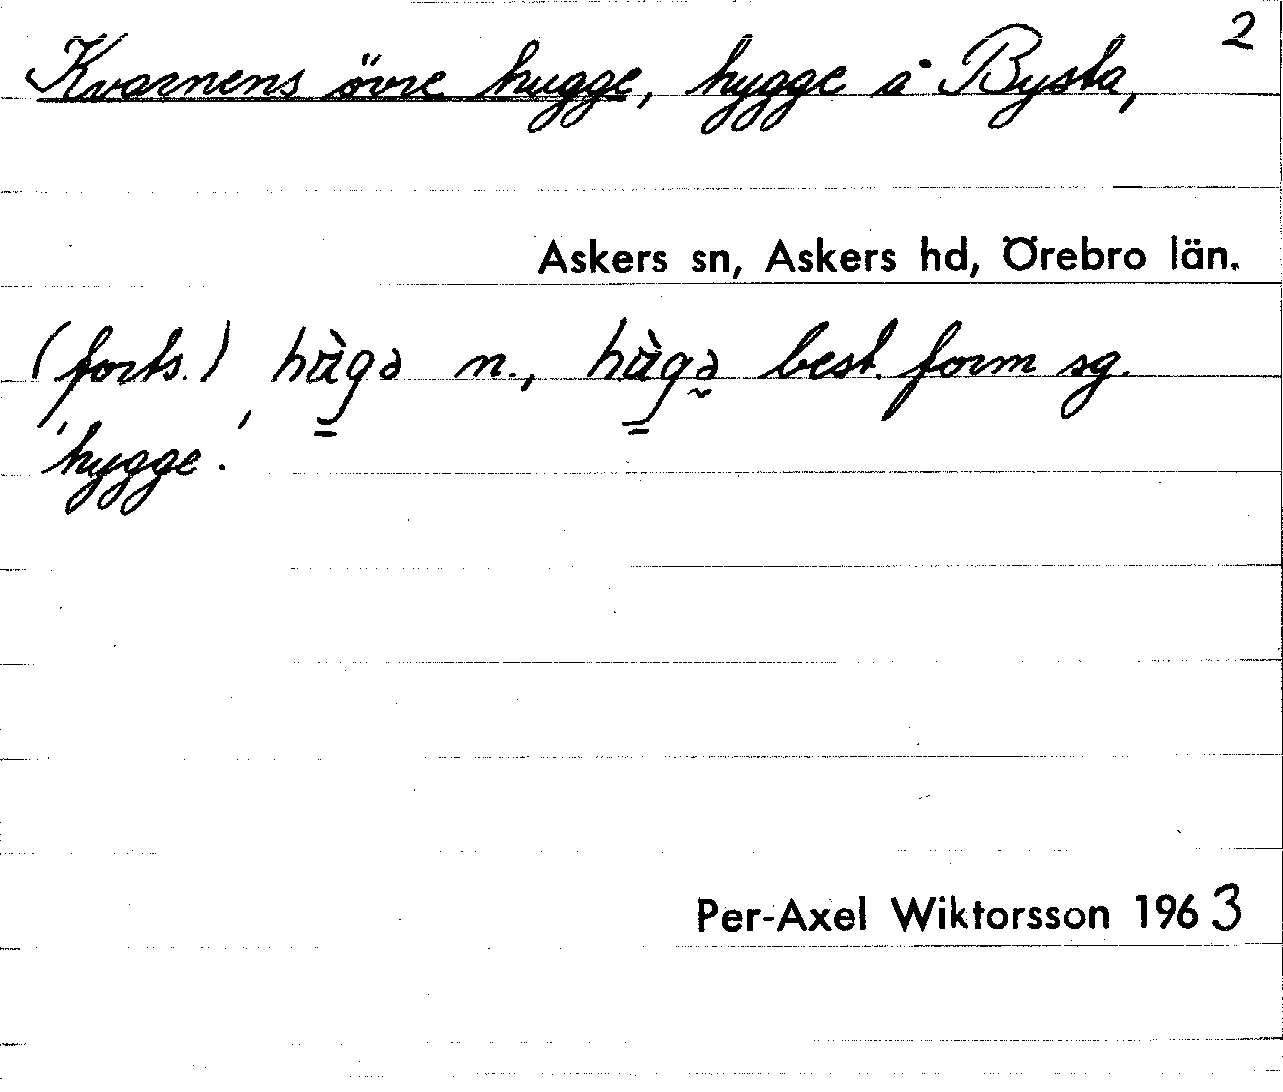 2
Kvarnens övre hugge, hygge å Bysta,
Askers sn, Askers hd, Örebro län.
(forts.) n., best. form sg.
'hygge'.
Per-Axel Wiktorsson 1963